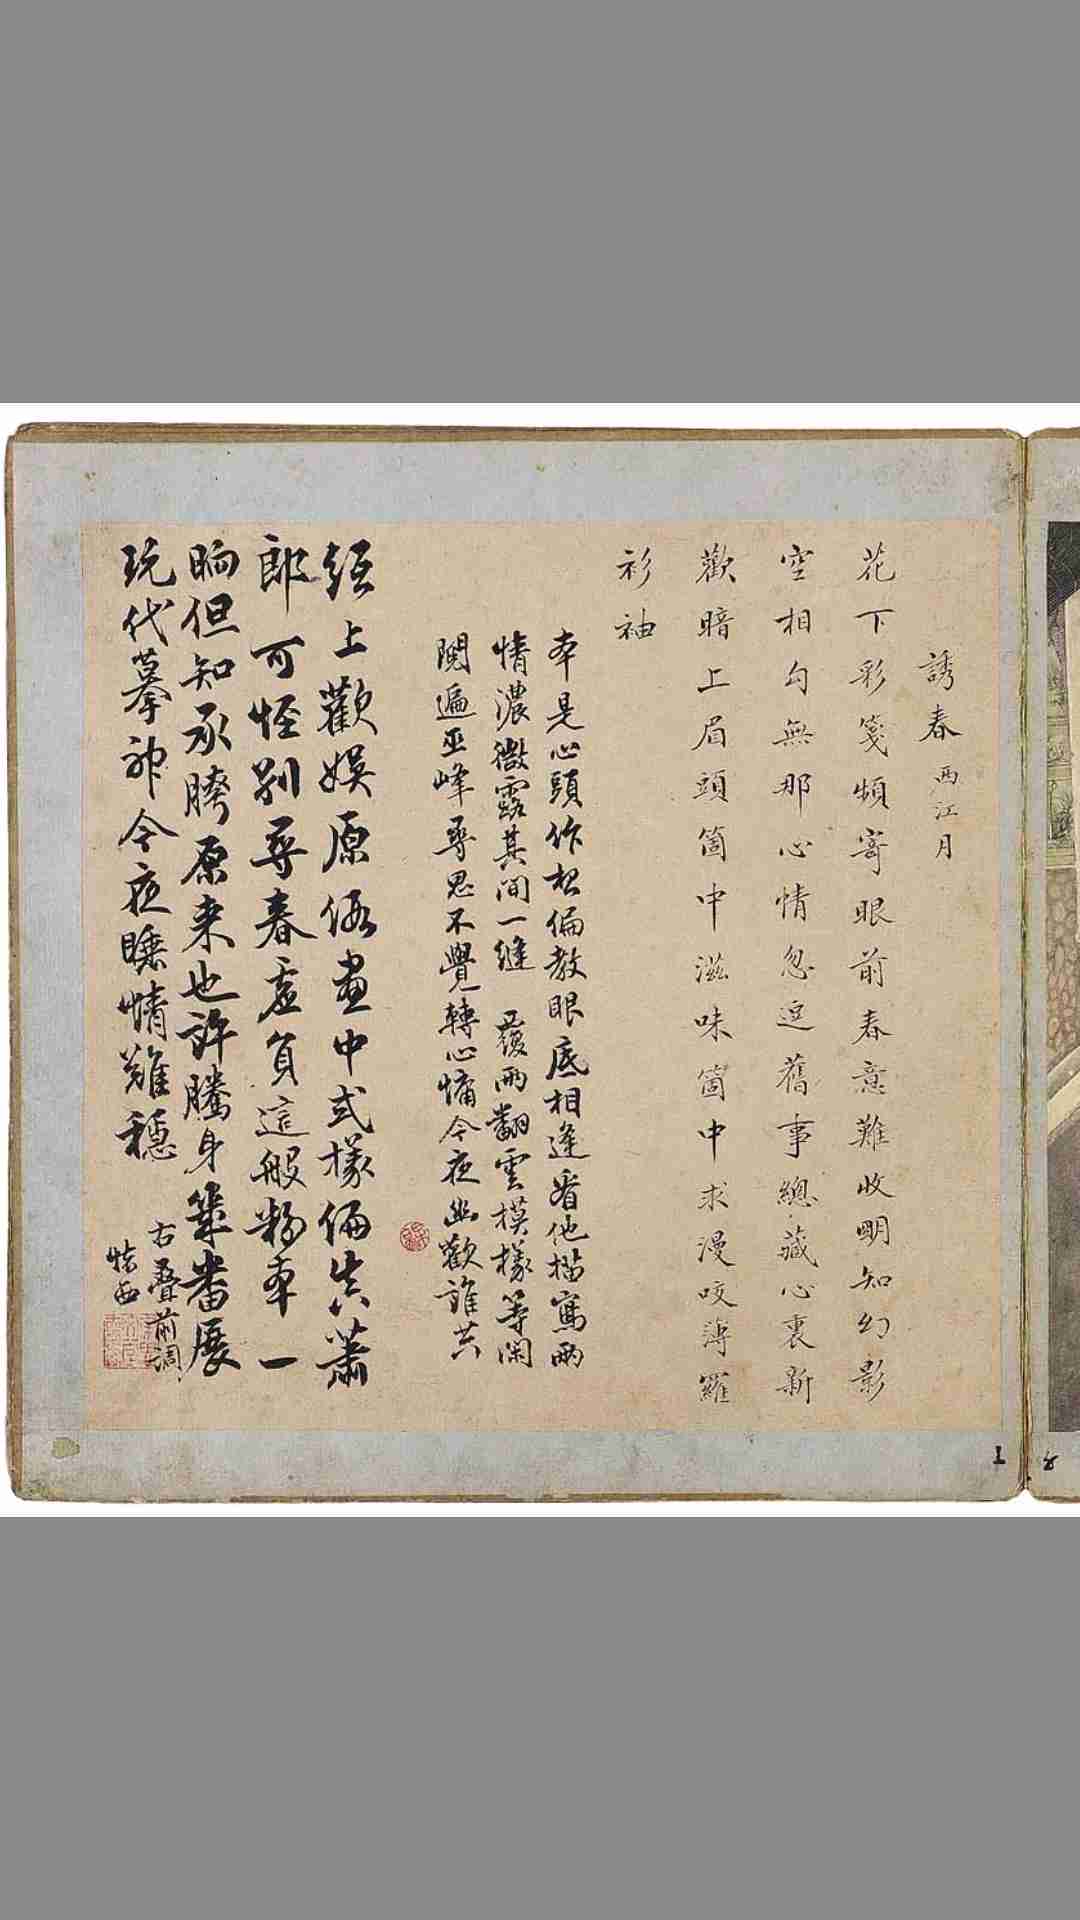 誘春 西江月
花下彩箋頻寄眼前春意難收明知幻影
空相勾無那心情忽逗舊事總藏心裏新
歡暗上眉頭箇中滋味箇中求漫咬薄羅
衫袖
本是心頭作想偏教眼底相逢看他描寫兩
情濃微露其間一縫 覆雨翻雲模樣等閑
閱遍巫峰尋思不覺轉心慵今夜幽歡誰共
紙上歡娛原假畫中式樣偏真蕭
郎可怪別尋春虛負這般粉本一
晌但知承原來也許騰身幾番展
玩代摹神今夜睡情難穩
右疊前調
1